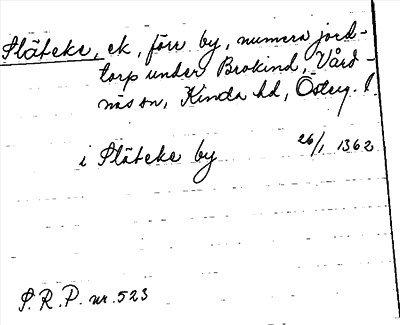 Släteke, ek, förr by, numera jord-
torp under Brokind, Vård-
näs sn, Kinda hd, Österg. l.
i Släteke by 26/1 1362
S.R.P. nr. 523